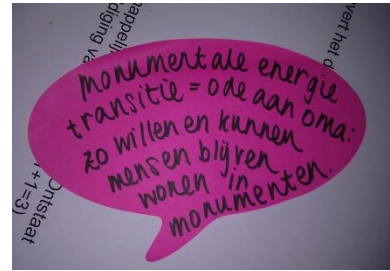 monumentale energie
transitie = ode aan oma:
zo willen en kunnen
mensen blijven
wonen in
monumenten.
vert het d
happelij
diging va
Ontstaat
1+1=3)